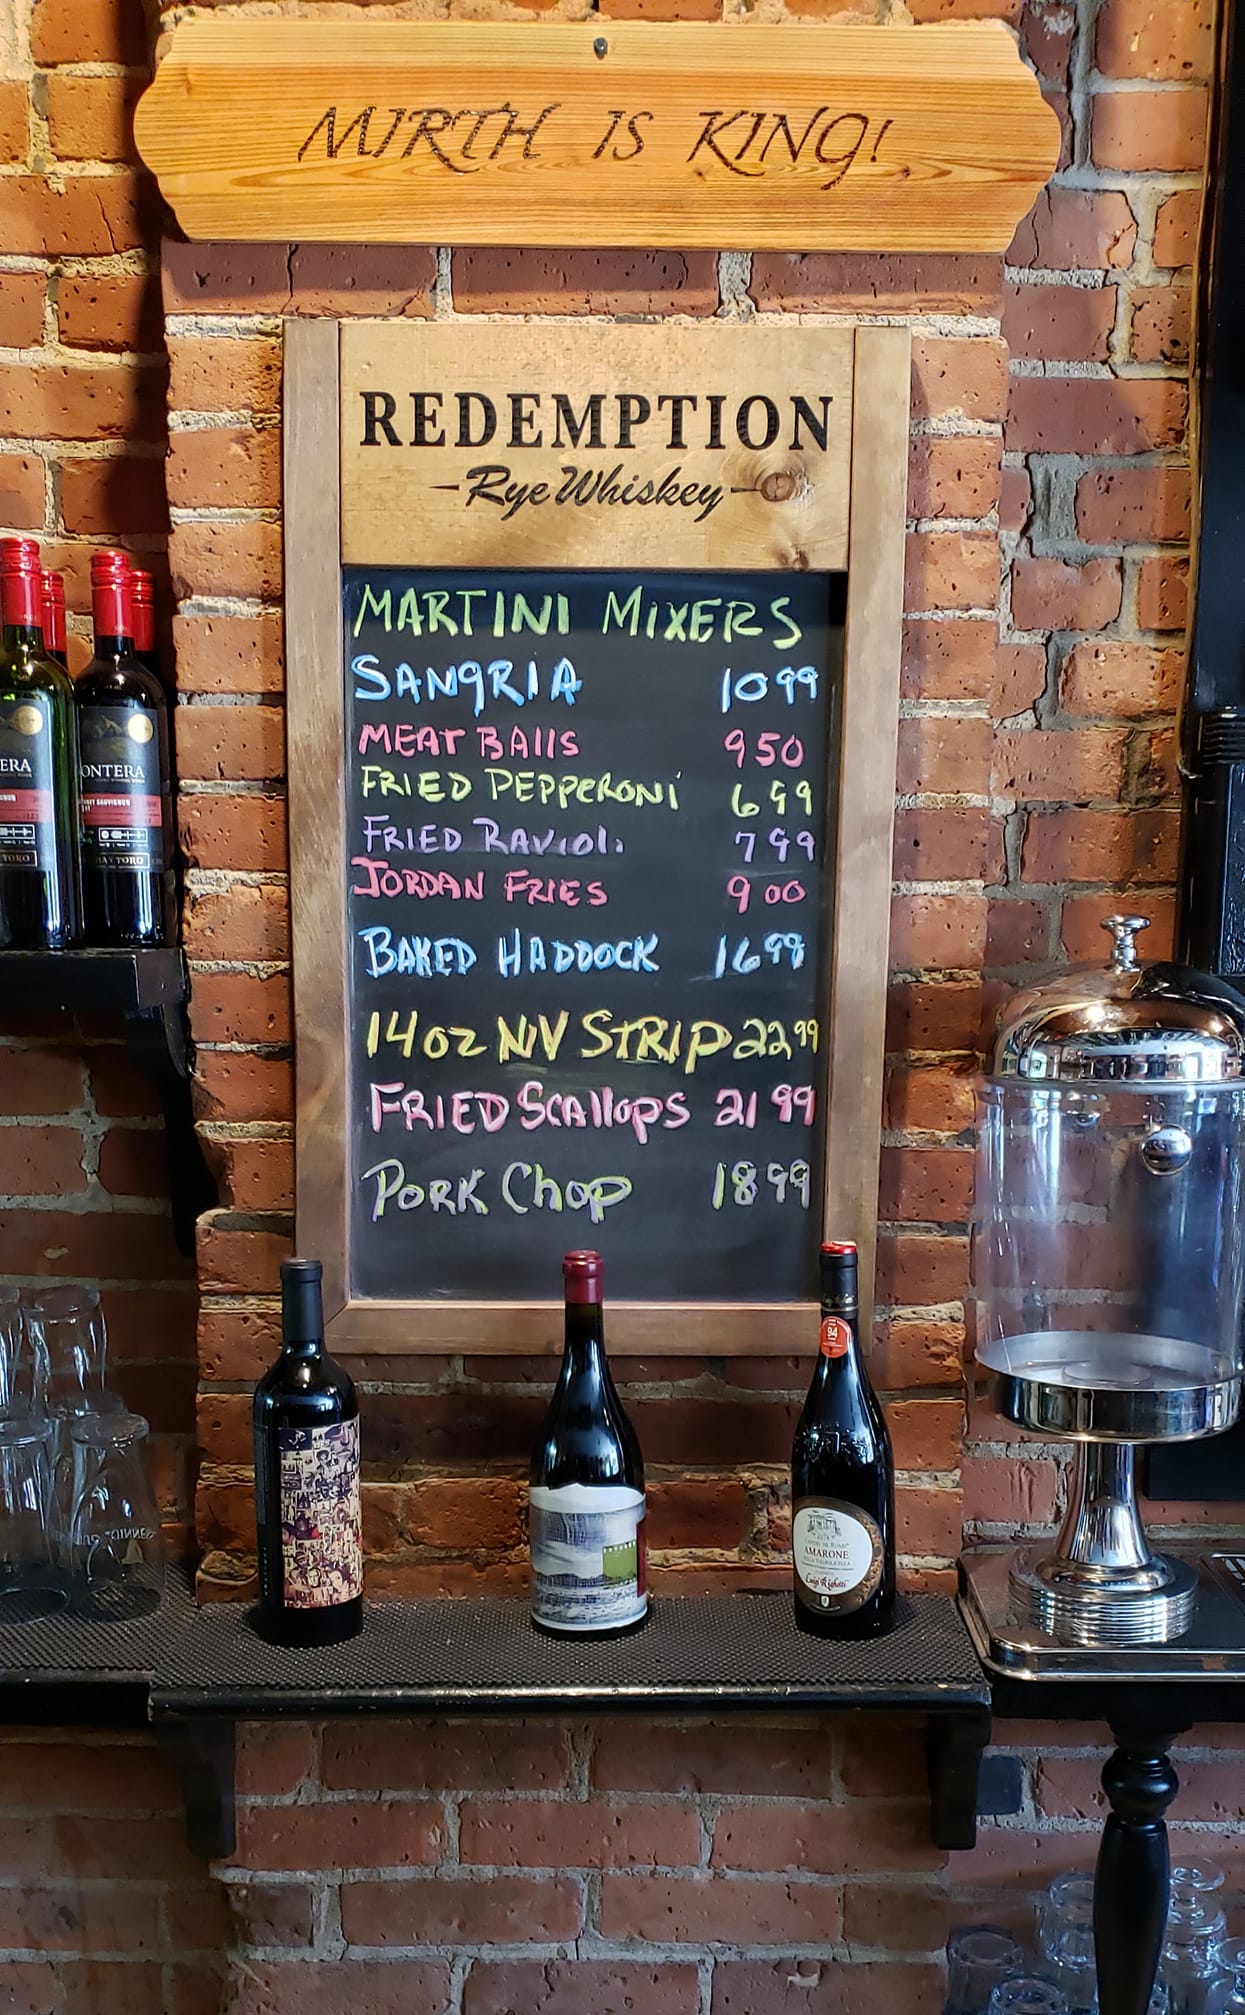 MIRTH IS KING!
REDEMPTION
-Rye Whiskey-
MARTINI MIXERS
SANGRIA 10 99
MEAT BAllS 9 50
FRIED PEPPERONi 6 99
FRIED RAVIOLi 7 99
JORDAN FRIES 9 00
BAKED HADDOCK 16 99
14oz NY STRIP 22 99
FRIED SCAllOPS 21 99
PORK ChOP 18 99
ERA
ONTERA
TORO
94
AMARONE
Luigi Righetti